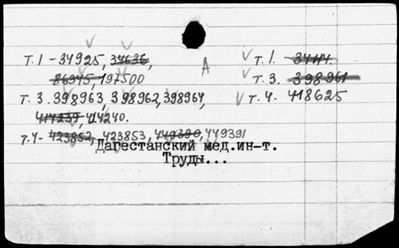 т. 1 - 34925, 34636,
86945, 197500
А
т. 3. 398963, 398962, 398964,
414239, 414240.
т. 4 - 423852, 423853, 449390, 449391
т. 1.
т. 3. 398961
т. 4. 418625
Дагестанский мед.ин-т.
Труды...